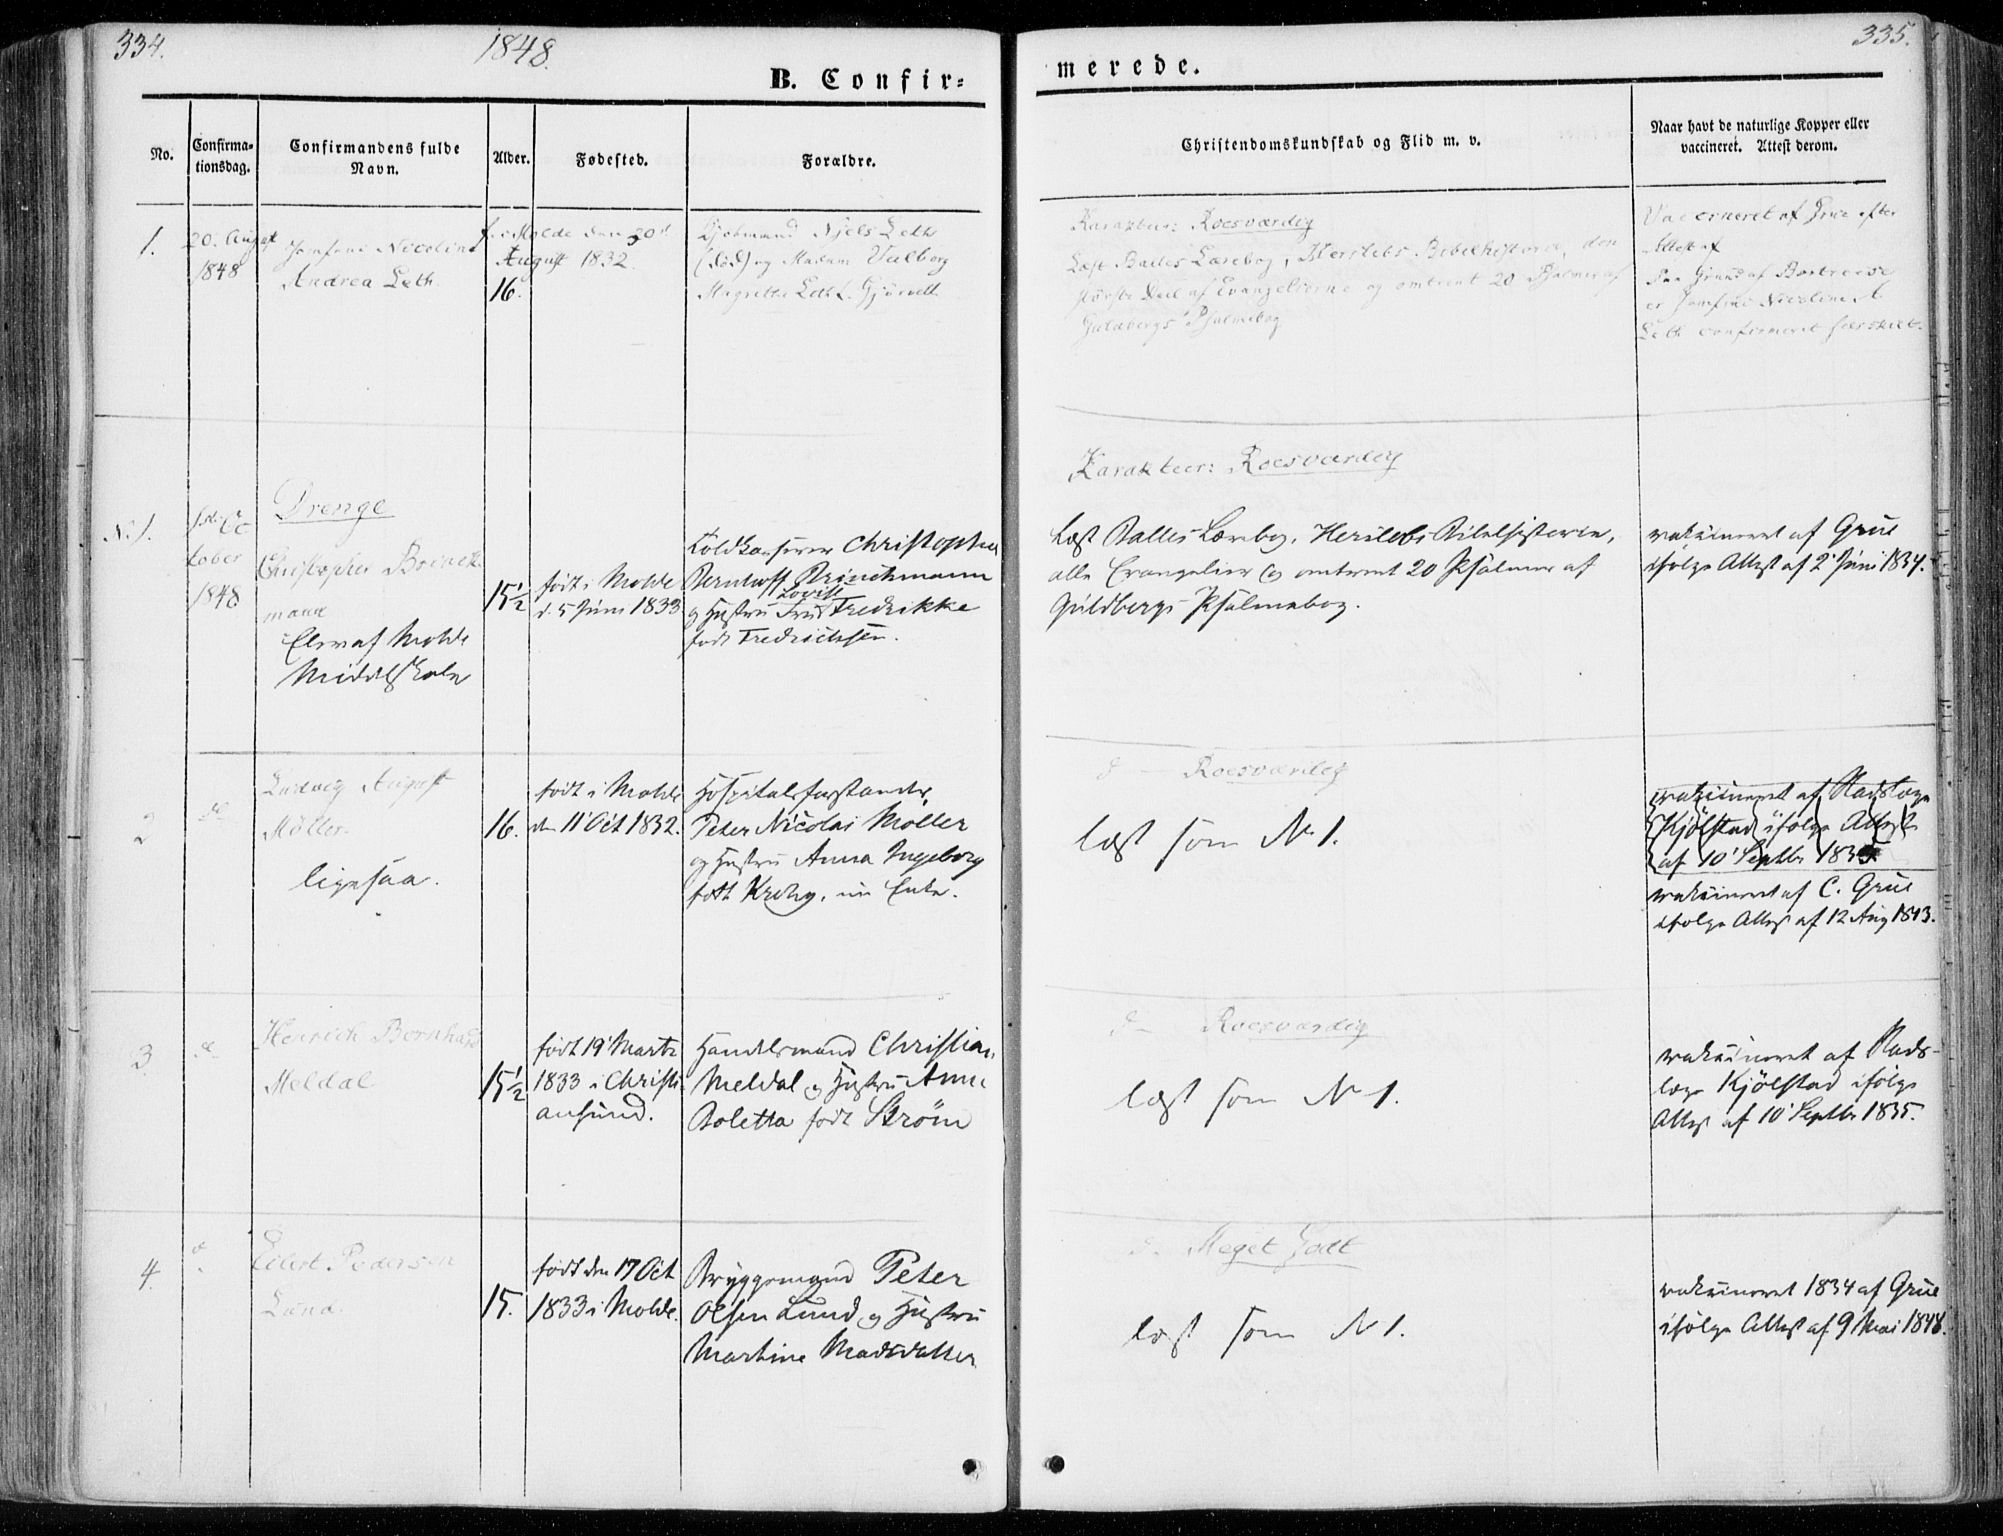 334.
1848.
B. Confir=
merede.
335.
No.
Confirma-
tionsdag.
Confirmandens fulde
Navn.
Alder.
Fødested.
Forældre.
Christendomskundskab og Flid m. v.
Naar havt de naturlige Kopper eller
vaccineret. Attest derom.
1.
20. August
1848
Jomfrue Nicoline
Andrea Leth.
f. i Molde den 20d
August 1832.
16.
Kjøbmand Niels Leth
(død) og Madam Valborg
Magrethe Leth f. Gjørvell
Karakteer: Roesværdig
Læst Balles Lærebog, Herslebs Bibelhistorie, den
største Deel af Evangelierne og omtrent 20 Psalmer af
Guldbergs Psalmebog
Vaccineret af Grue efter
Attest af
Paa Grund af Bortreise
er Jomfrue Nicoline A.
Leth confirmeret særskilt.
N. 1.
1ste Oc
tober
1848
Drenge
Christopher Brinck
mann
Elev af Molde
Middelskole
15½
født i Molde
d. 5 Juni 1833
Toldkasserer Christopher
Bernhoft Brinchmann
og Hustru Lovise Fredrikke
født Fredrichsen.
Karakteer: Roesværdig
Læst Balles Lærebog, Herslebs Bibelhistorie,
alle Evangelier og omtrent 20 Psalmer af
Guldbergs Psalmebog.
vakcineret af Grue
ifølge Attest af 2 Juni 1834.
2
do
Ludvig August
Møller.
ligesaa.
16.
født i Molde
den 11 Oct 1832.
Hospitalsforstander
Peter Nicolai Møller
og Hustru Anna Ingeborg
født Krohg, nu Enke.
do — Roesværdig
læst som N 1.
vakcineret af Stadslæge
Kjølstad ifølge Attest
af 10 Septbr 1835
vakcineret af C. Grue
ifølge Attest af 12 Aug 1843.
3
do
Henrich Bernhard
Meldal
15½
født 19 Marts
1833 i Christi
ansund.
Handelsmand Christian
Meldal og Hustru Anne
Boletta født Strøm
do — Roesværdig
læst som N 1.
vakcineret af Stads-
læge Kjølstad ifølge
Attest af 10 Septbr 1835.
4.
do
Eilert Pedersen
Lund.
15.
født den 17 Oct
1833 i Molde.
Bryggemand Peter
Olsen Lund og Hustru
Martine Madsdatter
do. Meget Godt
læst som N 1.
vakcineret 1834 af Grue
ifølge Attest af 9 Mai 1848.